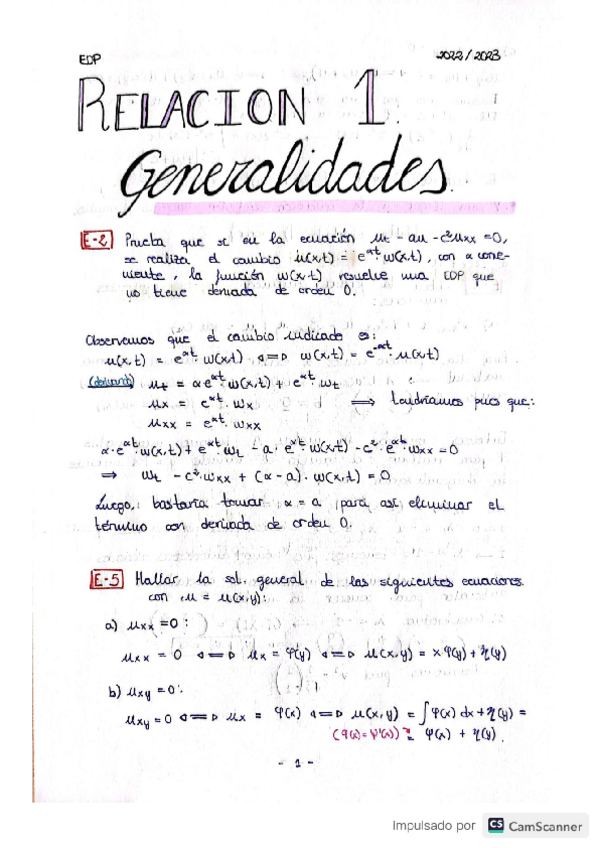 EDP 2022/2023
RELACION 1.
Generalidades.
E-2 Prueba que si en la ecuación u_t - au - c²u_xx = 0,
se realiza el cambio u(x,t) = e^αt · w(x,t), con α conve-
niente, la función w(x,t) resuelve una EDP que
no tiene derivada de orden 0.
Observemos que el cambio indicado es:
u(x,t) = e^αt · w(x,t) ⟺ w(x,t) = e^-αt · u(x,t)
(derivando) u_t = α·e^αt · w(x,t) + e^αt · w_t
u_x = e^αt · w_x ⟹ tendríamos pues que:
u_xx = e^αt · w_xx
α·e^αt · w(x,t) + e^αt · w_t - a · e^αt · w(x,t) - c² · e^αt · w_xx = 0
⟹ w_t - c² · w_xx + (α - a) · w(x,t) = 0
Luego, bastaría tomar α = a para así eliminar el
término con derivada de orden 0.
E-5 Hallar la sol. general de las siguientes ecuaciones
con u = u(x,y):
a) u_xx = 0 :
u_xx = 0 ⟺ u_x = φ(y) ⟺ u(x,y) = xφ(y) + η(y)
b) u_xy = 0 :
u_xy = 0 ⟺ u_x = φ(x) ⟺ u(x,y) = ∫ φ(x) dx + η(y) =
(φ(x) = ψ'(x)) = ψ(x) + η(y).
- 1 -
Impulsado por CS CamScanner